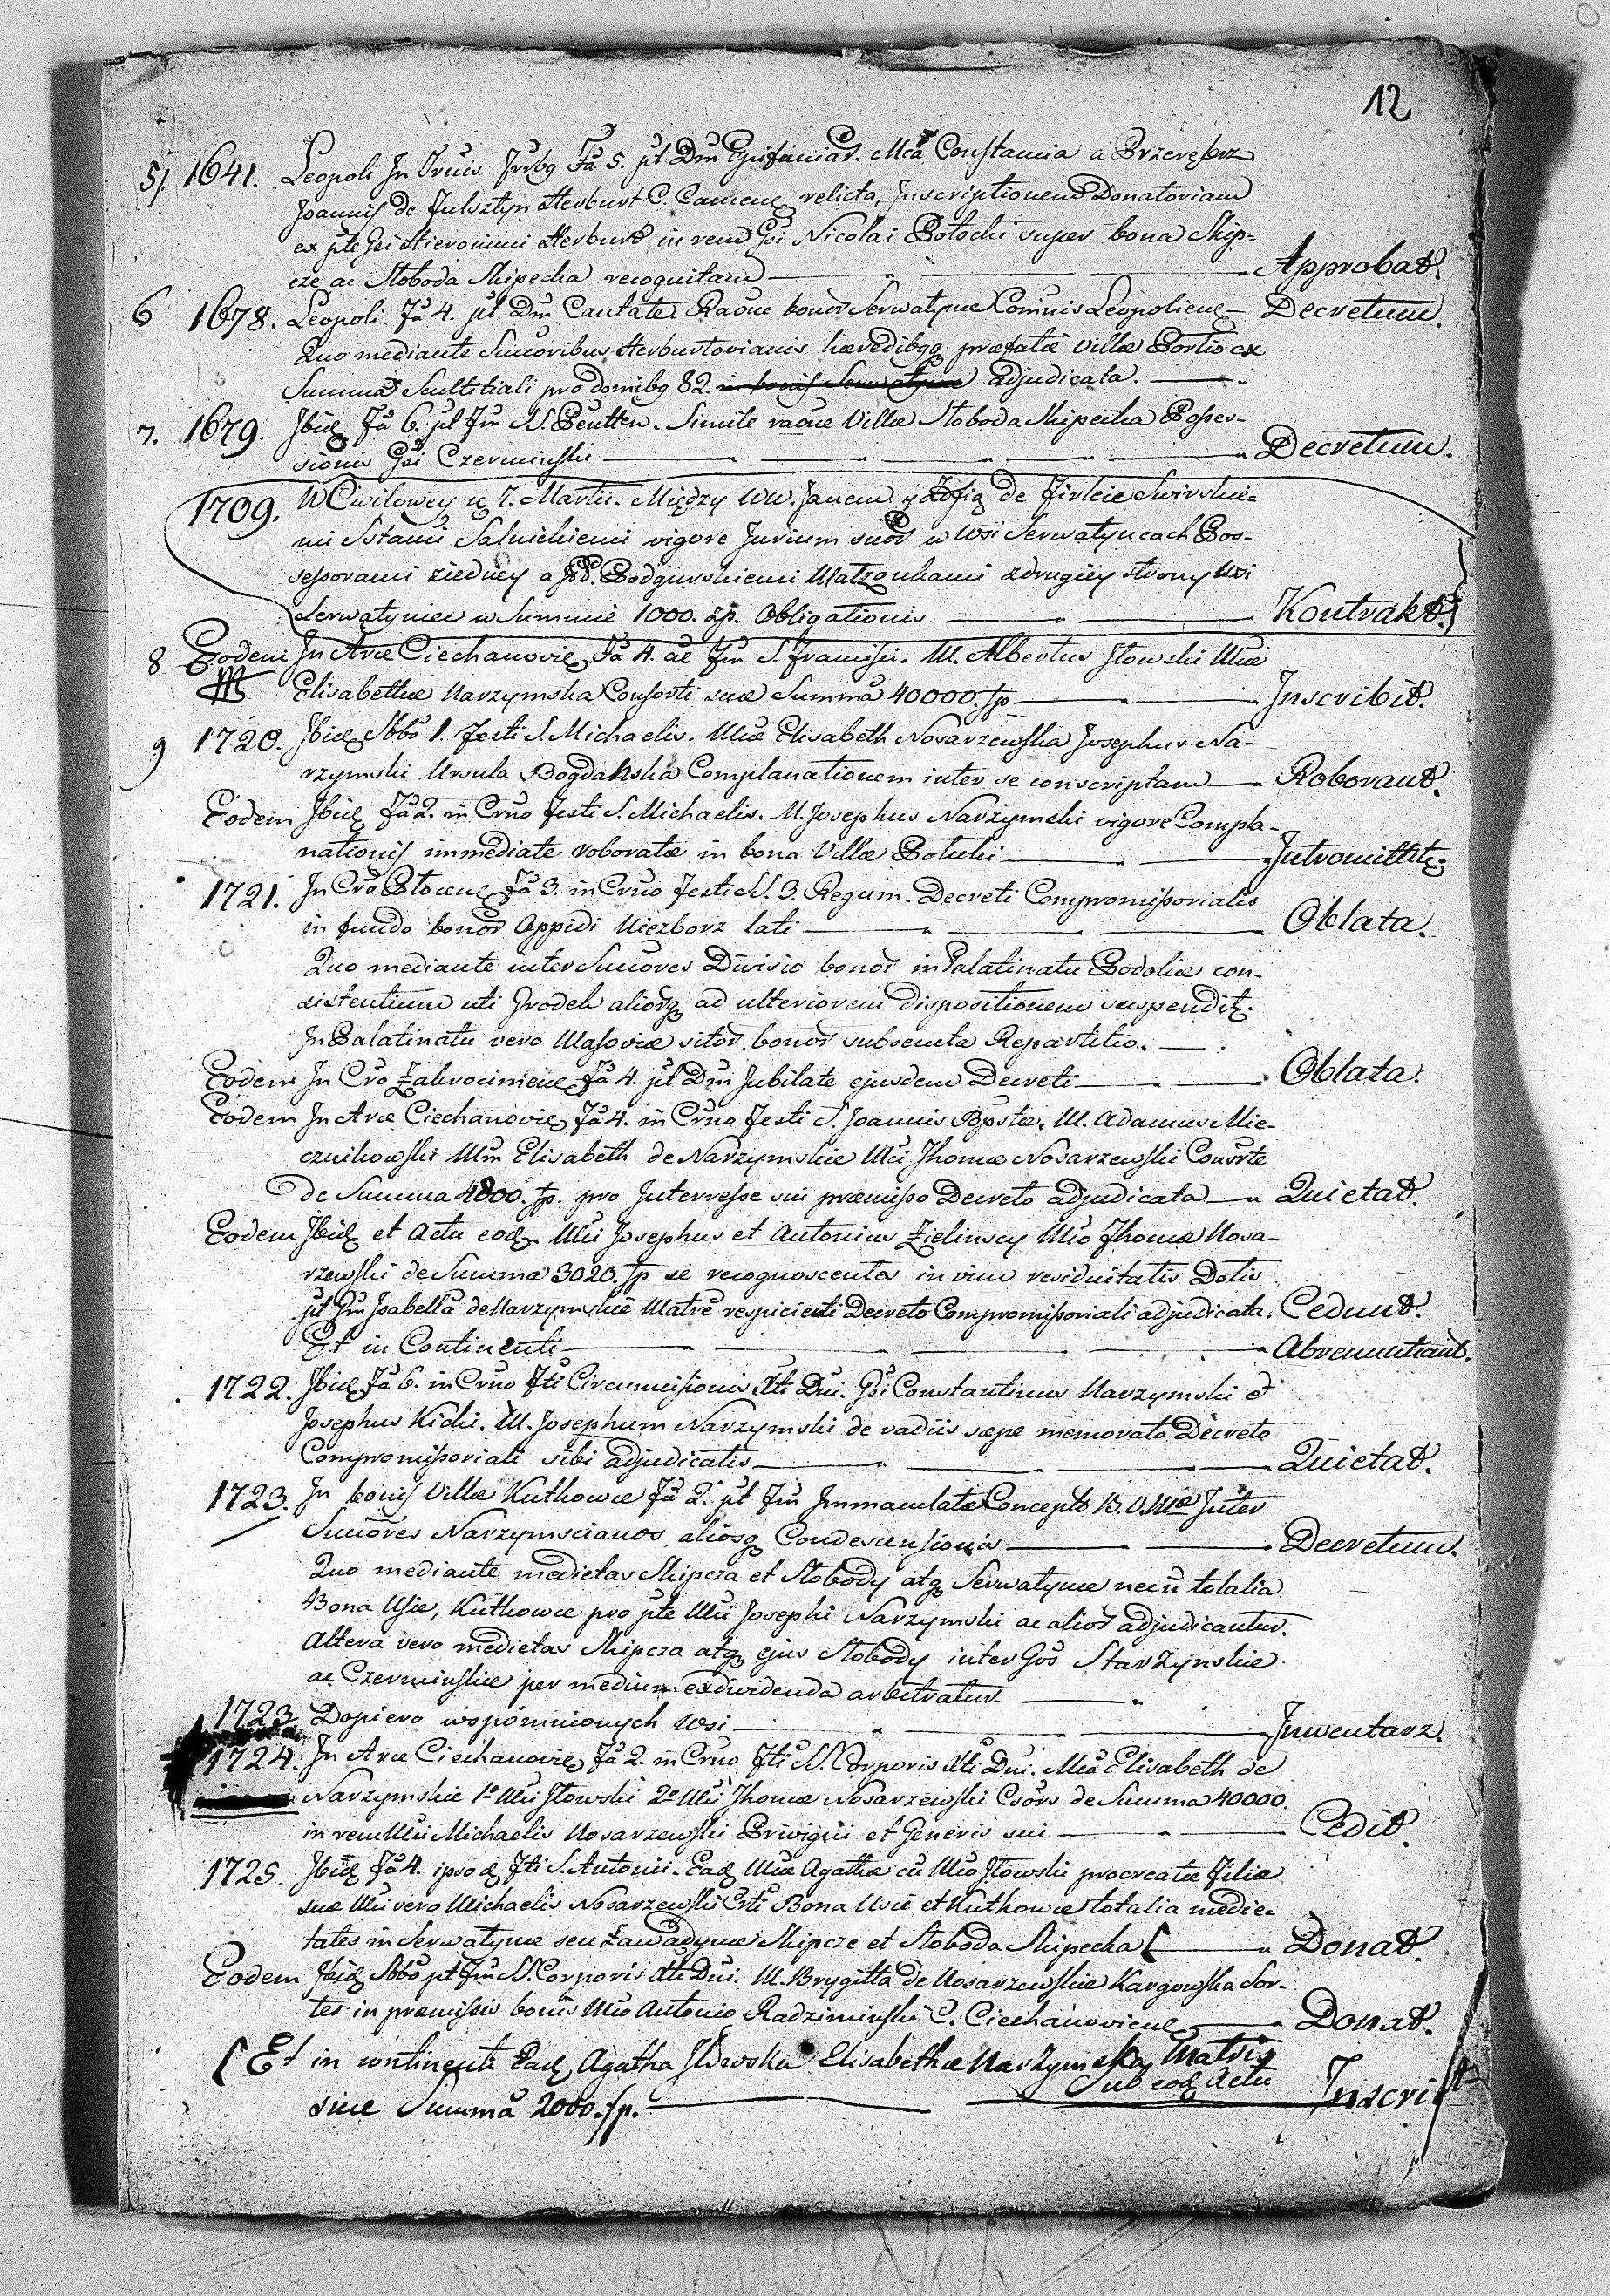 12
5/. 1641. Leopoli In Fria 5. pt Dm Epifaniar. Mca Constancia a
Joannis de Fulsztyn Herburt C. Camene relicta, Inscriptionem Donatoriam
ex pte Gsi Hieronimi Herburt in rem Gsi Nicolai Potocki super bona Skip=
cze ac Sloboda Skipecka recognitam — Approbat.
6 1678. Leopoli Fa 4. pt Dm Cantate Raone bonor Serwatynce Comnis Leopoliene — Decretum.
Quo mediante Succoribus Herburtovianis hæredibqq præfatæ Villæ Portio ex
Summa pro domibq 82. in bonis Serwatynce adjudicata. —
7. 1679. Ibidq Fa 6. pt Fm S. Pentten. Simile raone Villæ Sloboda Skipecka Posses-
sionis Gsi Czerminski — Decretum.
1709. W Cwilowey 7. Martii. Między WW. Janem y Zofią de Firleie Swirskie=
mi Ssłami Salnickiemi vigore Jurium suor w Wsi Serwatyncach Pos-
sessorami ziedney a Podgurskiemi Małżonkami zdrugiey strony Wsi
Serwatyniec w Summie 1000. zp. Obligationis — Kontrakt.
8 Eodem In Arce Ciechanovie Fa 4. ae Fm S. Francisci. M. Albertus Iłowski Mcæ
Elisabethæ Narzymska Consorti suæ Summa 40000. fp — Inscribit.
9 1720. Ibidq Sbbo 1. Festi S. Michaelis. Mcæ Elisabeth Nosarzewska Josephus Na-
rzymski Ursula Bogdańska Complanationem inter se conscriptam — Roborant.
Eodem Ibidq Fa 2. in Crno Festi S. Michaelis. M. Josephus Narzymski vigore Compla-
nationis immediate roboratæ in bona Villæ Potuli — Intromittit.
1721. In Cro Płocene Fa 3. in Crno Festi SS. 3. Regum. Decreti Compromissorialis
in fundo bonor Oppidi Niezborz lati — Oblata.
Quo mediante inter Succores Divisio bonor in Palatinatu Podoliæ con-
sistentium uti Grodek aliorq ad ulteriorem dispositionem suspendit.
In Palatinatu vero Masoviæ sitor bonor subsecuta Repartitio. —
Eodem In Cro Zakrocimene Fa 4. pt Dm Jubilate ejusdem Decreti — Oblata.
Eodem In Arce Ciechanovie Fa 4. in Crno Festi S. Joannis Bpstæ. M. Adamus Mie-
cznikowski Mm Elisabeth de Narzymskie Mci Thomæ Nosarzewski Consrte
de Summa 4000. fp. pro Interresse sui præmisso Decreto adjudicata — Quietat.
Eodem Ibidq et Actu eodq. Mci Josephus et Antonius Zielinscy Mco Thomæ Nosa-
rzewski de Summa 3020. fp se recognoscentes in vim residuitatis Dotis
pt Gm Isabella de Narzymskie Matre respicienti Decreto Compromissoriali adjudicata. Cedunt.
Et in Continenti — Abrenuntiant.
1722. Ibidq Fa 6. in Crno Fti Circumcisionis Xti Dni. Gsi Constantinus Narzymski et
Josephus Kicki. M. Josephum Narzymski de vadiis sæpe memorato Decreto
Compromissoriali sibi adjudicatis — Quietat.
1723. In bonis Villæ Kutkowce Fa 2. pt Fm Immaculatæ Concepto B. V. Mæ Inter
Succores Narzymscianos aliosq Condescensionis — Decretum.
Quo mediante medietas Skipcza et Slobody atq Serwatynce necū totalia
Bona Usie, Kutkowce pro pte Mci Josephi Narzymski ac alior adjudicantur.
Altera vero medietas Skipcza atq ejus Slobody inter Gos Starzynskie
ac Czerminskie per medium exdividenda arbitratur —
1723 Dopiero wspomnionych Wsi — Inwentarz.
1724. In Arce Ciechanovie Fa 2. in Crno Fti SS. Corporis Xti Dni. Mca Elisabeth de
Narzymskie 1o Mci Iłowski 2o Mci Thomæ Nosarzewski Csors de Summa 40000.
in rem Mci Michaelis Nosarzewski Privigni et Generis sui — Cedit.
1725. Ibidq Fa 4. ipso q Fti S. Antonii. Eadq Mcæ Agathæ cū Mco Iłowski procreatæ Filiæ
suæ Mci vero Michaelis Nosarzewski Csrti Bona Usie et Kutkowce totalia medie=
tates in Serwatynce seu Zawadynce Skipcze et Sloboda Skipecka [ — Donat.
Eodem Ibidq Sbbo pt Fm SS. Corporis Xti Dni. M. Brygitta de Nosarzewskie Kargowska Sor-
tes in præmissis bonis Mco Antonio Radziminski C. Ciechanoviene — Donat.
[ Et in continenti Eadq Agatha Iłowska Elisabethæ Narzymska Matris
sub eodq Actu
suæ Summa 2000. fp. — Inscribit